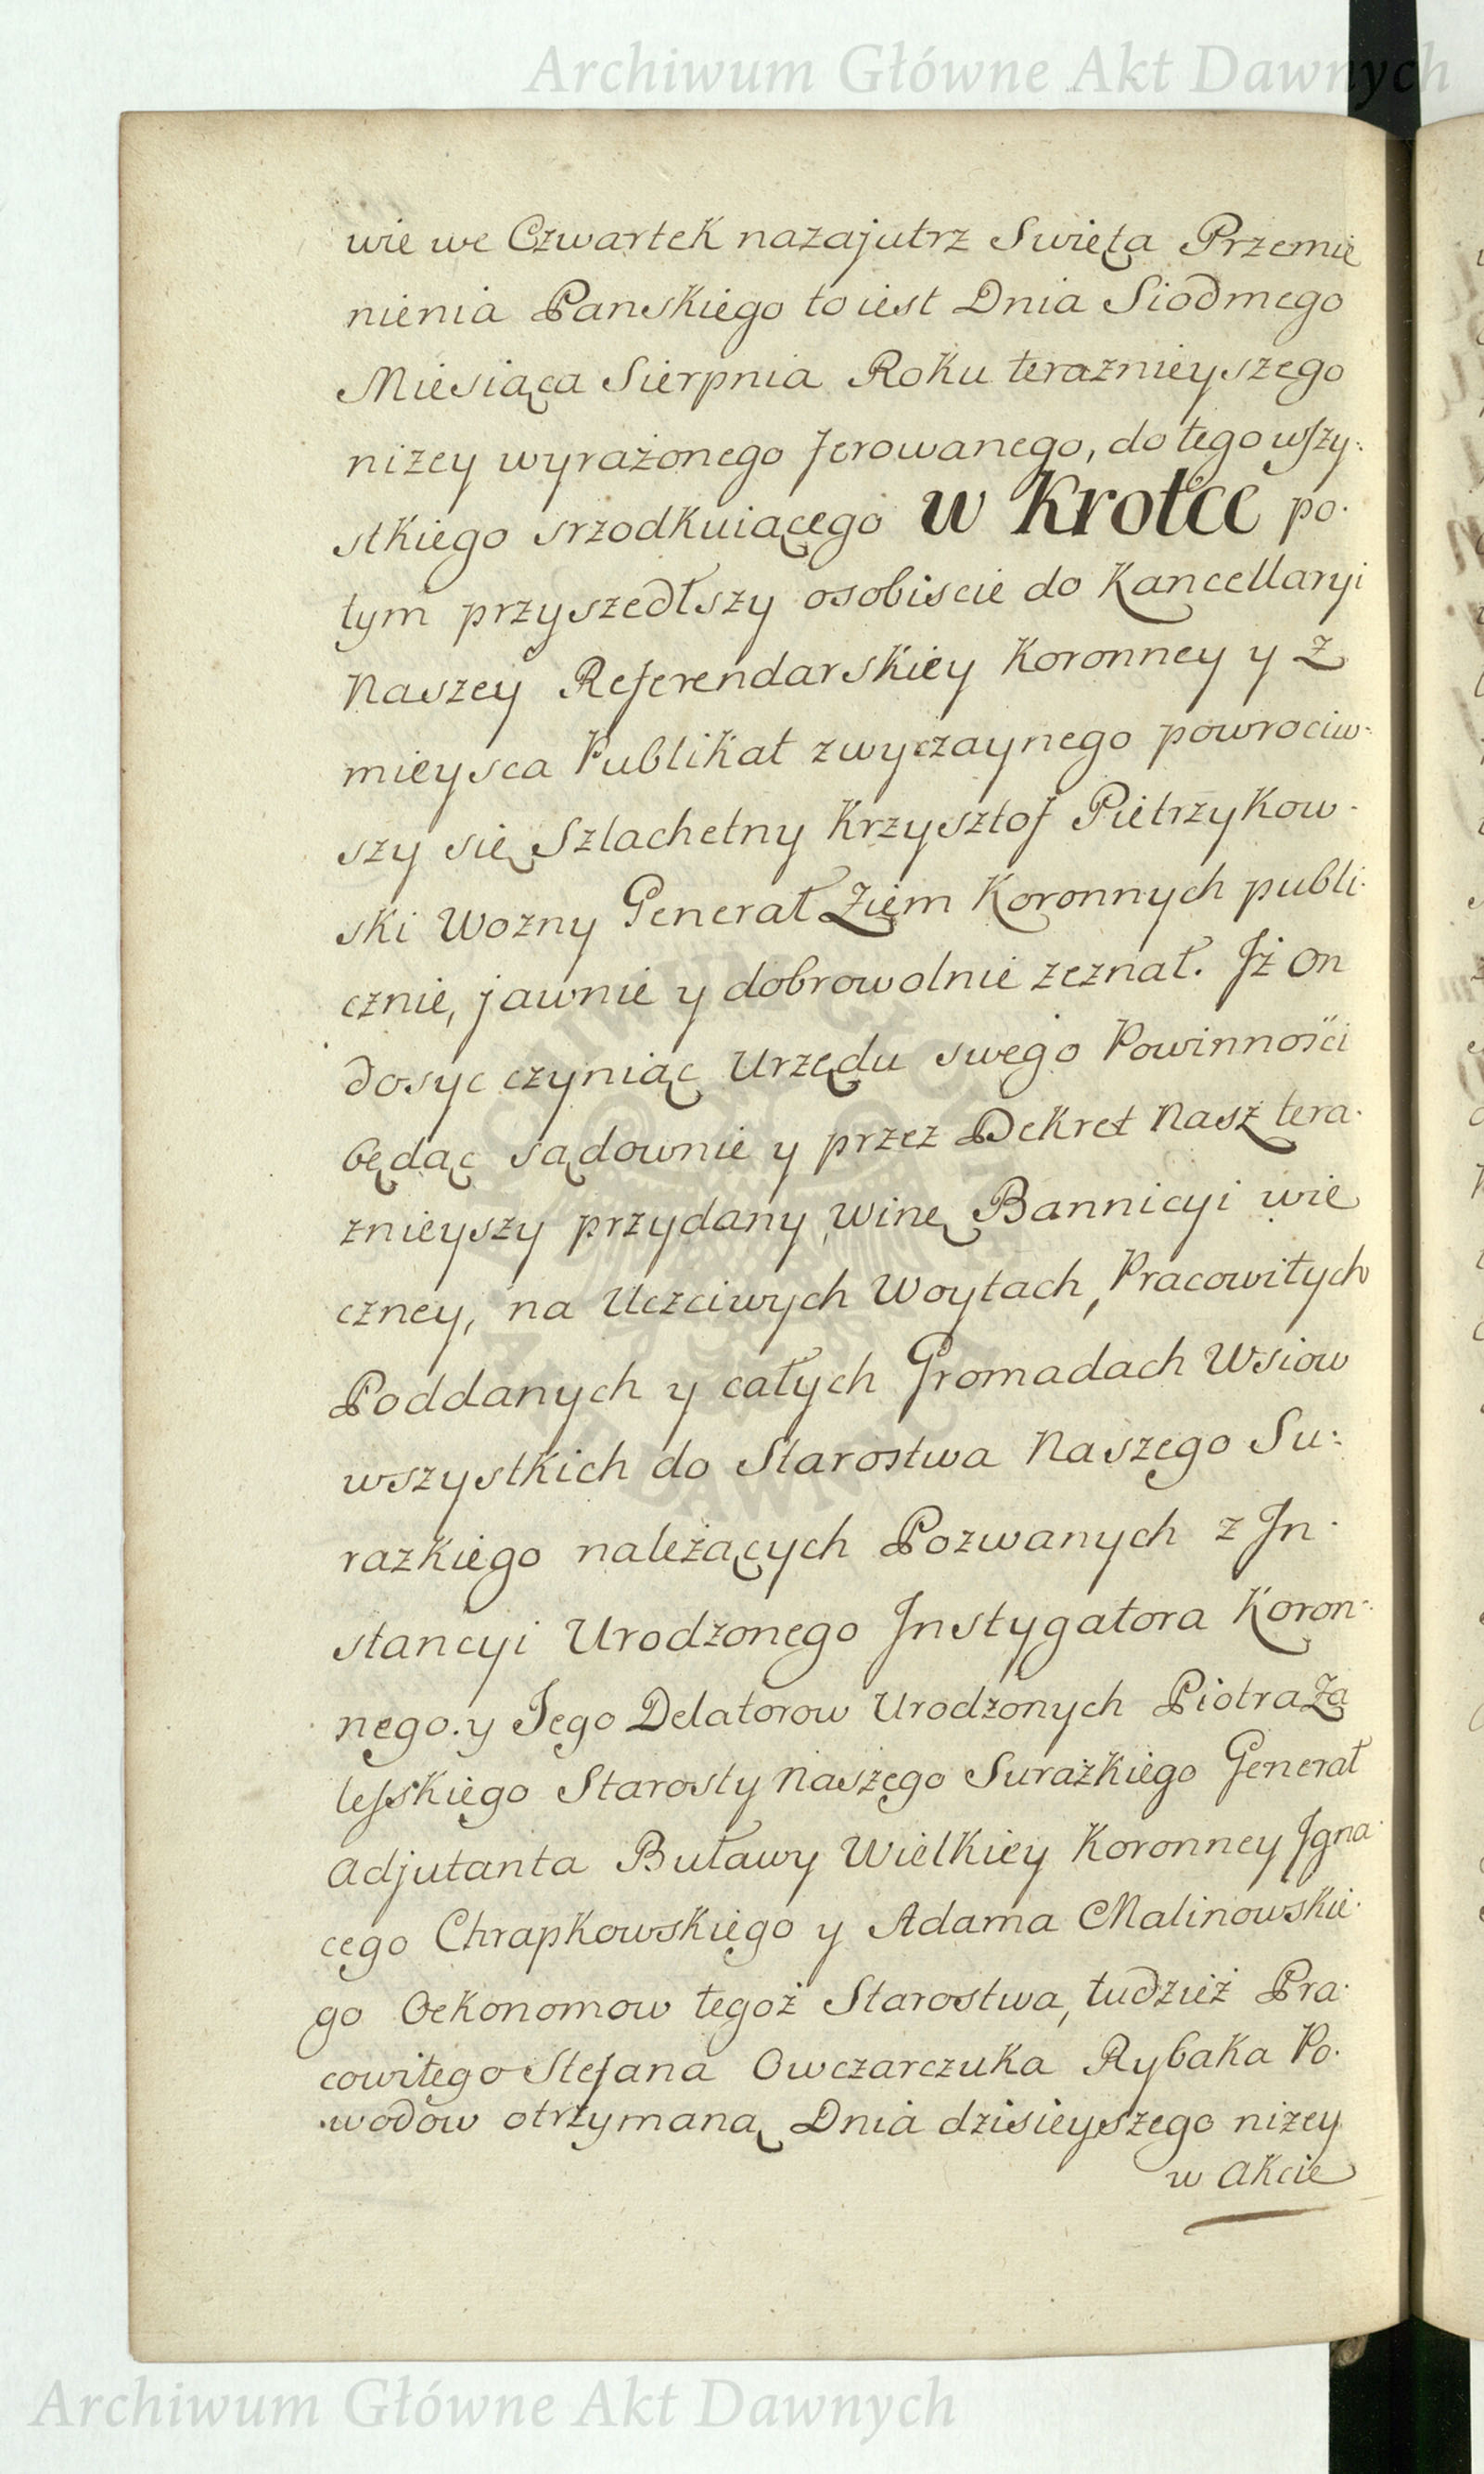 Archiwum Główne Akt Dawnych
wie we Czwartek nazajutrz Swięta Przemie
nienia Panskiego to iest Dnia Siodmego
Miesiąca Sierpnia Roku teraznieyszego
niżey wyrażonego ferowanego, do tego wszy:
stkiego srzodkuiącego w Krotce po.
tym przyszedłszy osobiscie do Kancellaryi
Naszey Referendarskiey Koronney y z
mieysca Publikat zwyczaynego powrociw-
szy się Szlachetny Krzysztof Pietrzykow-
ski Wozny Generał Ziem Koronnych publi-
cznie, jawnie y dobrowolnie zeznał. Iż on
dosyc czyniąc Urzędu swego Powinności
będąc sądownie y przez Dekret Nasz tera-
znieyszy przydany, winę Bannicyi wie
czney, na Uczciwych Woytach, Pracowitych
Poddanych y całych Gromadach Wsiow
wszystkich do Starostwa Naszego Su:
razkiego należących Pozwanych z In-
stancyi Urodzonego Instygatora Koron-
nego. y Jego Delatorow Urodzonych Piotra Za
lesskiego Starosty Naszego Surażkiego Generał
Adjutanta Buławy Wielkiey Koronney Igna-
cego Chrapkowskiego y Adama Malinowskie-
go Oekonomow tegoż Starostwa, tudzież Pra-
cowitego Stefana Owczarczuka Rybaka Po-
wodow otrzymaną Dnia dzisieyszego niżey
w akcie
Archiwum Główne Akt Dawnych